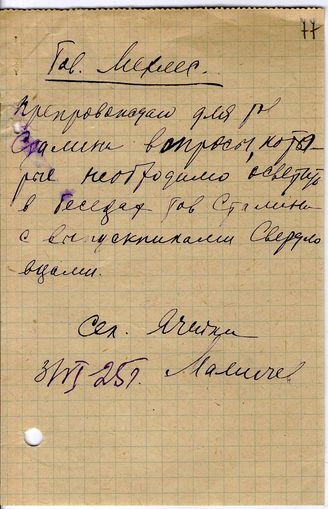 77
Тов. Мехлес.
Препровождаю для тов
Сталина вопросы, кото-
рые необходимо осветить
в беседах тов Сталина
с выпускниками Свердло
вцами.
Сек. Ячейки
3/VI 25 г.